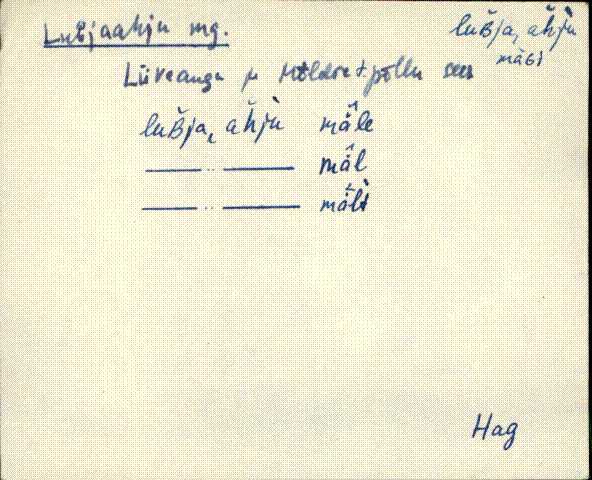 Luʙjaahju mg.
lušja, ahju
mäɢi
Liiveaugu ja Möldre t. põllu sees
lušja, ahju mäle
—— " —— mäl
—— " —— mält
Hag